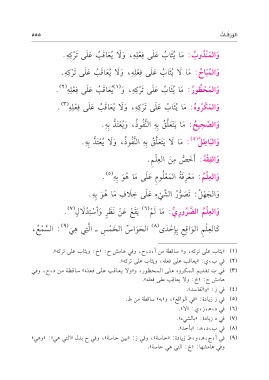 الورقات ٥٥٥
وَالمَنْدُوبُ: مَا يُثَابُ عَلَى فِعْلِهِ، وَلَا يُعَاقَبُ عَلَى تَرْكِهِ.
وَالمُبَاحُ: مَا لَا يُثَابُ عَلَى فِعْلِهِ، وَلَا يُعَاقَبُ عَلَى تَرْكِهِ.
وَالمَحْظُورُ: مَا يُثَابُ عَلَى تَرْكِهِ، وَ(١)يُعَاقَبُ عَلَى فِعْلِهِ(٢).
وَالمَكْرُوهُ: مَا يُثَابُ عَلَى تَرْكِهِ، وَلَا يُعَاقَبُ عَلَى فِعْلِهِ(٣).
وَالصَّحِيحُ: مَا يَتَعَلَّقُ بِهِ النُّفُوذُ، وَيُعْتَدُّ بِهِ.
وَالبَاطِلُ(٤): مَا لَا يَتَعَلَّقُ بِهِ النُّفُوذُ، وَلَا يُعْتَدُّ بِهِ.
وَالفِقْهُ: أَخَصُّ مِنَ العِلْمِ.
وَالعِلْمُ: مَعْرِفَةُ المَعْلُومِ عَلَى مَا هُوَ بِهِ(٥).
وَالجَهْلُ: تَصَوُّرُ الشَّيْءِ عَلَى خِلَافِ مَا هُوَ بِهِ.
وَالعِلْمُ الضَّرُورِيُّ: مَا لَمْ(٦) يَقَعْ عَنْ نَظَرٍ وَاسْتِدْلَالٍ(٧).
كَالعِلْمِ الوَاقِعِ بِإِحْدَى(٨) الحَوَاسِّ الخَمْسِ - الَّتِي هِيَ(٩): السَّمْعُ،
(٢) في ب، ي: «يعاقب على فعله، ويثاب على تركه».
(٣) في ب تقديم المكروه على المحظور، و«ولا يعاقب على فعله» ساقطة من د،ح، وفي
هامش ح: «خ: ولا يعاقب على فعله».
(٤) في ز: «والفاسد».
(٥) في ز زيادة: «في الواقع»، و«به» ساقطة من ط.
(٧) في د زيادة: «بالشيء».
وفي هامشها: «خ: التي هي حاسة».